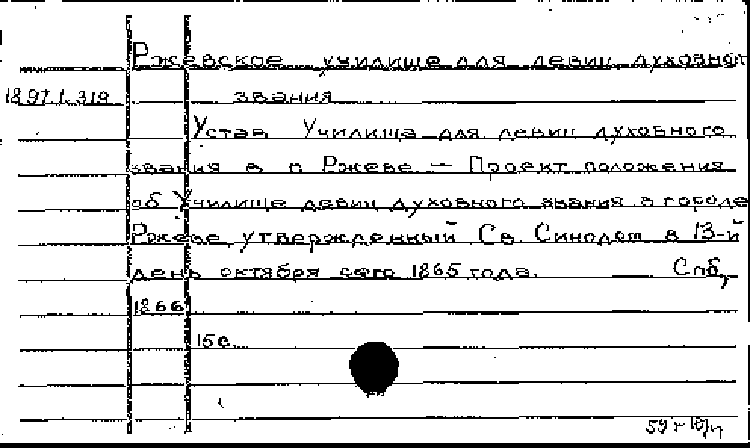 Ржевское училище для девиц духовного
18.97.1.319 звания
Устав Училища для девиц духовного
звания в г. Ржеве — Проект положения
об Училище девиц духовного звания в городе
Ржеве, утвержденный Св. Синодом в 13-й
день октября сего 1865 года. Спб,
1866
15с.